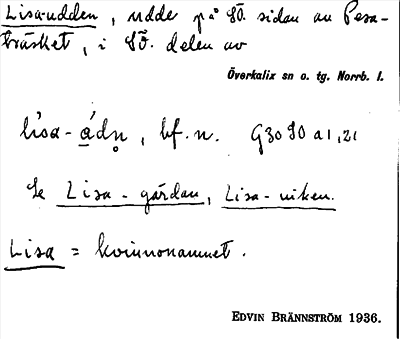 Lisa-udden, udde på SÖ. sidan av Pesa-
träsket, i SÖ. delen av
Överkalix sn o. tg. Norrb. l.
lìsa-ádn̥, bf. n. G3090 a1,21
Se Lisa-gärdan, Lisa-viken.
Lisa = kvinnonamnet.
EDVIN BRÄNNSTRÖM 1936.